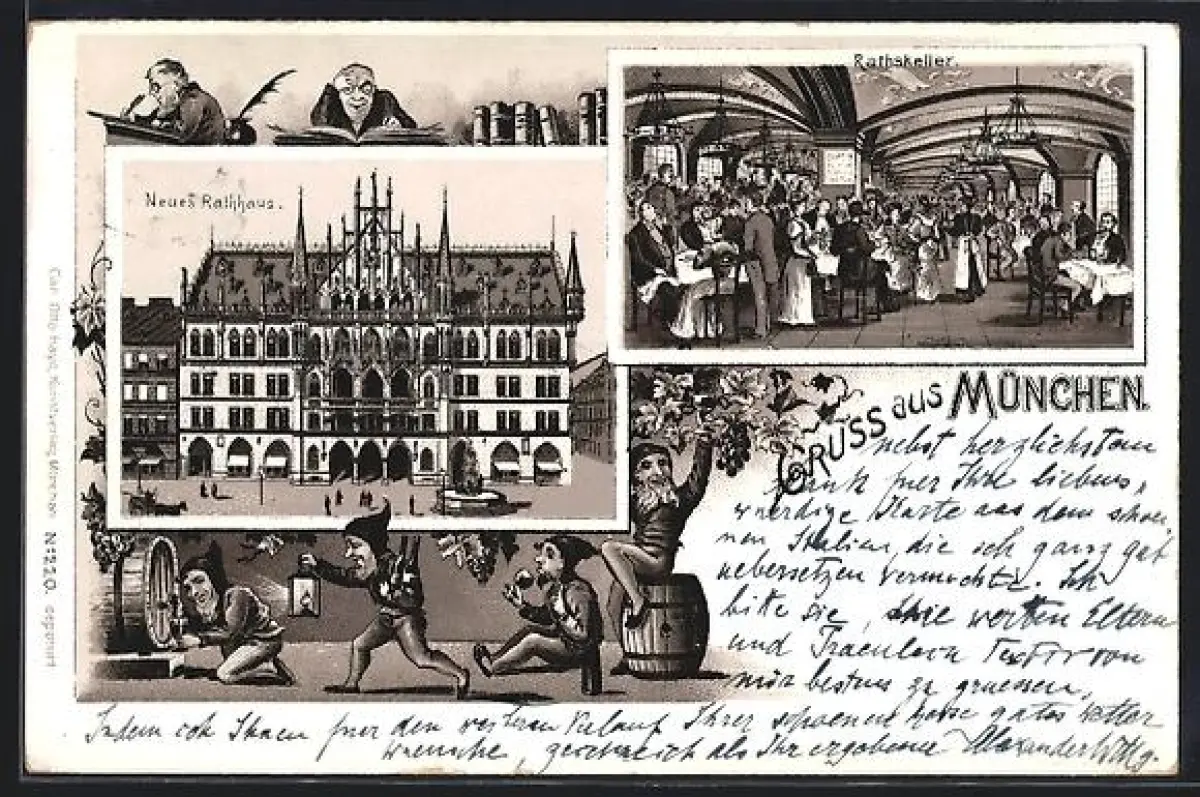 Rathskeller.
Neues Rathhaus.
GRUSS aus MÜNCHEN.
nebst herzlichstem
Dank fuer Ihre liebens„
wuerdige Karte aus dem schoe„
nen Italien, die ich ganz gut
uebersetzen vermochte. Ich
bitte sie, Ihre werten Eltern
und Fraeulein von
mir bestens zu gruessen,
Indem ich Ihnen fuer den weiteren Verlauf Ihrer schoenen Reise gutes Wetter
wuensche, zeichne ich als Ihr ergebener Alexander
Carl Otto Hayd, Kunstverlag, München No 220. deponiert